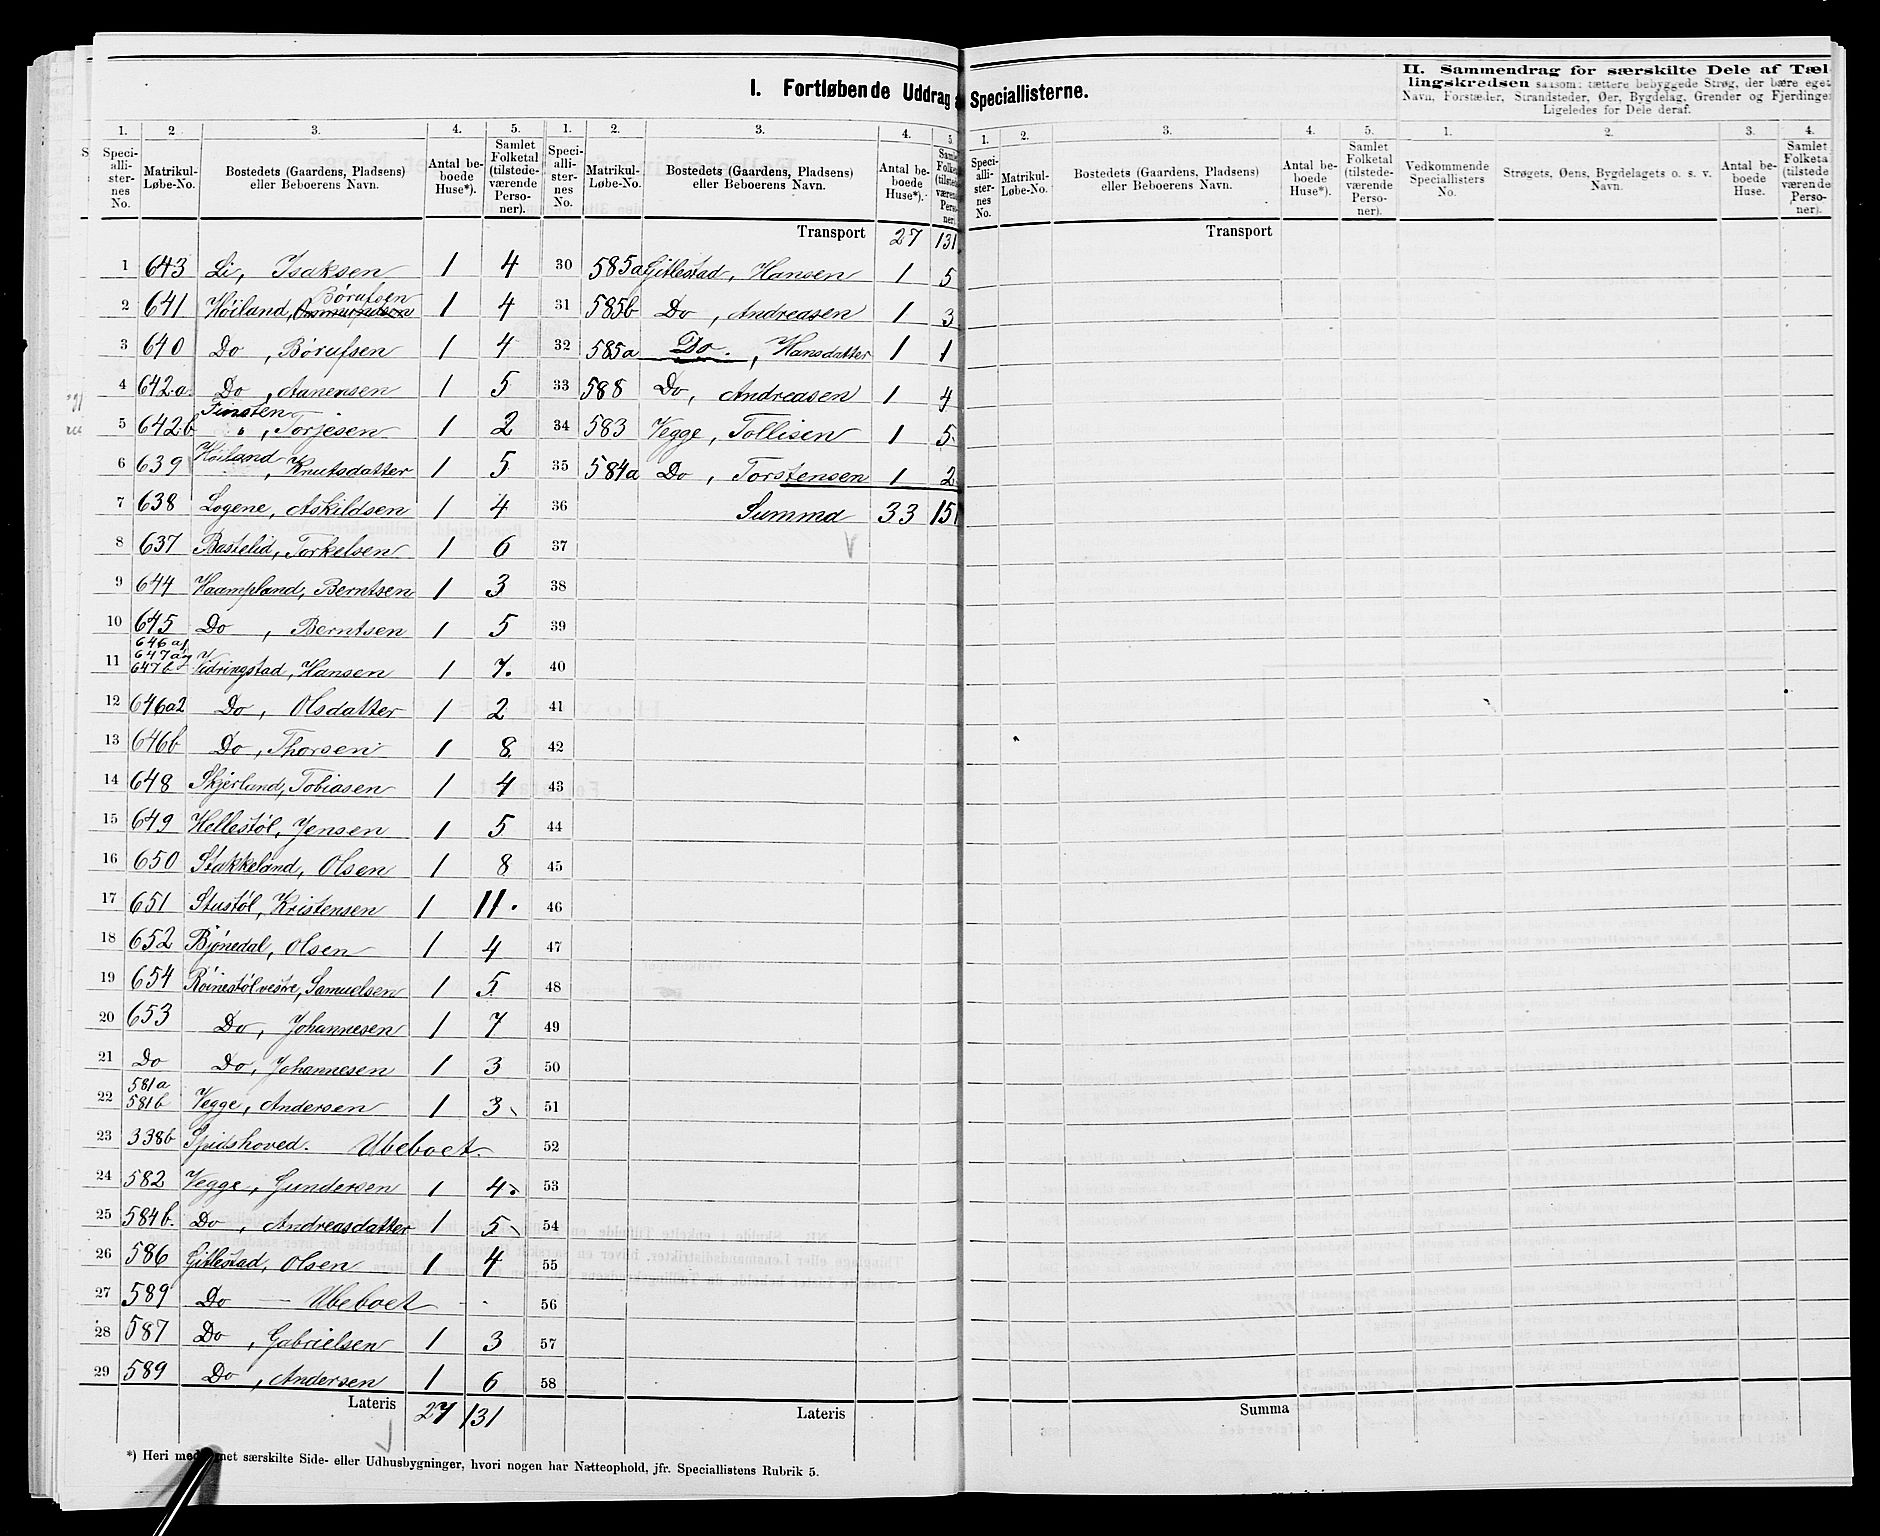 I. Fortløbende Uddrag a Speciallisterne.
II. Sammendrag for særskilte Dele af Tæl-
lingskredsen saasom: tættere bebyggede Strøg, der bære eget
Navn, Forstæder, Strandsteder, Øer, Bygdelag, Grender og Fjerdinger
Ligeledes for Dele deraf.
1. 2 3. 4. 5. 1. 2. 3. 4. 5 1. 2. 3. 4. 5. 1. 2. 3. 4.
Speci-alli-ster-nes No. Matrikul-Løbe-No. Bostedets (Gaardens, Pladsens) eller Beboerens Navn. Antal be-boede Huse*). Samlet Folketal (tilstede-værende Perso-ner).
Speci-alli-ster-nes No. Matrikul-Løbe-No. Bostedets (Gaardens, Pladsens) eller Beboerens Navn. Antal be-boede Huse*). Samlet Folketa (tilstede værende Perso-ner)
Speci-alli-ster-nes No. Matrikul-Løbe-No. Bostedets (Gaardens, Pladsens) eller Beboerens Navn. Antal be-boede Huse*). Samlet Folketal (tilstede-værende Perso-ner).
Vedkommende Speciallisters No. Strøgets, Øens, Bygdelagets o. s. v. Navn. Antal be-boede Huse. Samlet Folketa (tilstede værende Perso-ner).
1 643 Li, Isaksen 1 4
2 641 Höiland, Börufsen 1 4
3 640 Do, Börufsen 1 4
4 642.a. Do, Aanensen 1 5
5 642.b Finsten, Torjesen 1 2
6 639 Höiland, Knutsdatter 1 5
7 638 Logene, Askildsen 1 4
8 637 Bastelid, Torkelsen 1 6
9 644 Haampland, Berntsen 1 3
10 645 Do, Berntsen 1 5
646a1
647a
11 647b Vidringstad, Hansen 1 7.
12 646a2 Do, Olsdatter 1 2
13 646b Do, Thorsen 1 8
14 648 Skjerland, Tobiasen 1 4
15 649 Hellestöl, Jensen 1 5
16 650 Stakkeland, Olsen 1 8
17 651 Stustöl, Kristensen 1 11.
18 652 Bjönedal, Olsen 1 4
19 654 Röinestöl vestre, Samuelsen 1 5
20 653 Do, Johannesen 1 7
21 Do Do, Johannesen 1 3
581a
22 581b Vegge, Andersen 1 3
23 338b Spidshoved. Ubeboet.
24 582 Vegge, Gundersen 1 4.
25 584b. Do, Andreasdatter 1 5
26 586 Gitlestad, Olsen 1 4
27 589 Do — Ubeboet
28 587 Do, Gabrielsen 1 3
29 589 Do, Andersen 1 6
Lateris 27 131
Transport 27 131
30 585a Gitlestad, Hansen 1 5
31 585b Do, Andreasen 1 3
32 585a Do., Hansdatter 1 1
33 588 Do, Andreasen 1 4
34 583 Vegge, Tollisen 1 5
35 584a Do, Torstensen 1 2
36 Summa 33 151
37
38
39
40
41
42
43
44
45
46
47
48
49
50
51
52
53
54
55
56
57
58
Lateris
Transport
Summa
*) Heri med net særskilte Side- eller Udhusbygninger, hvori nogen har Natteophold, jfr. Speciallistens Rubrik 5.